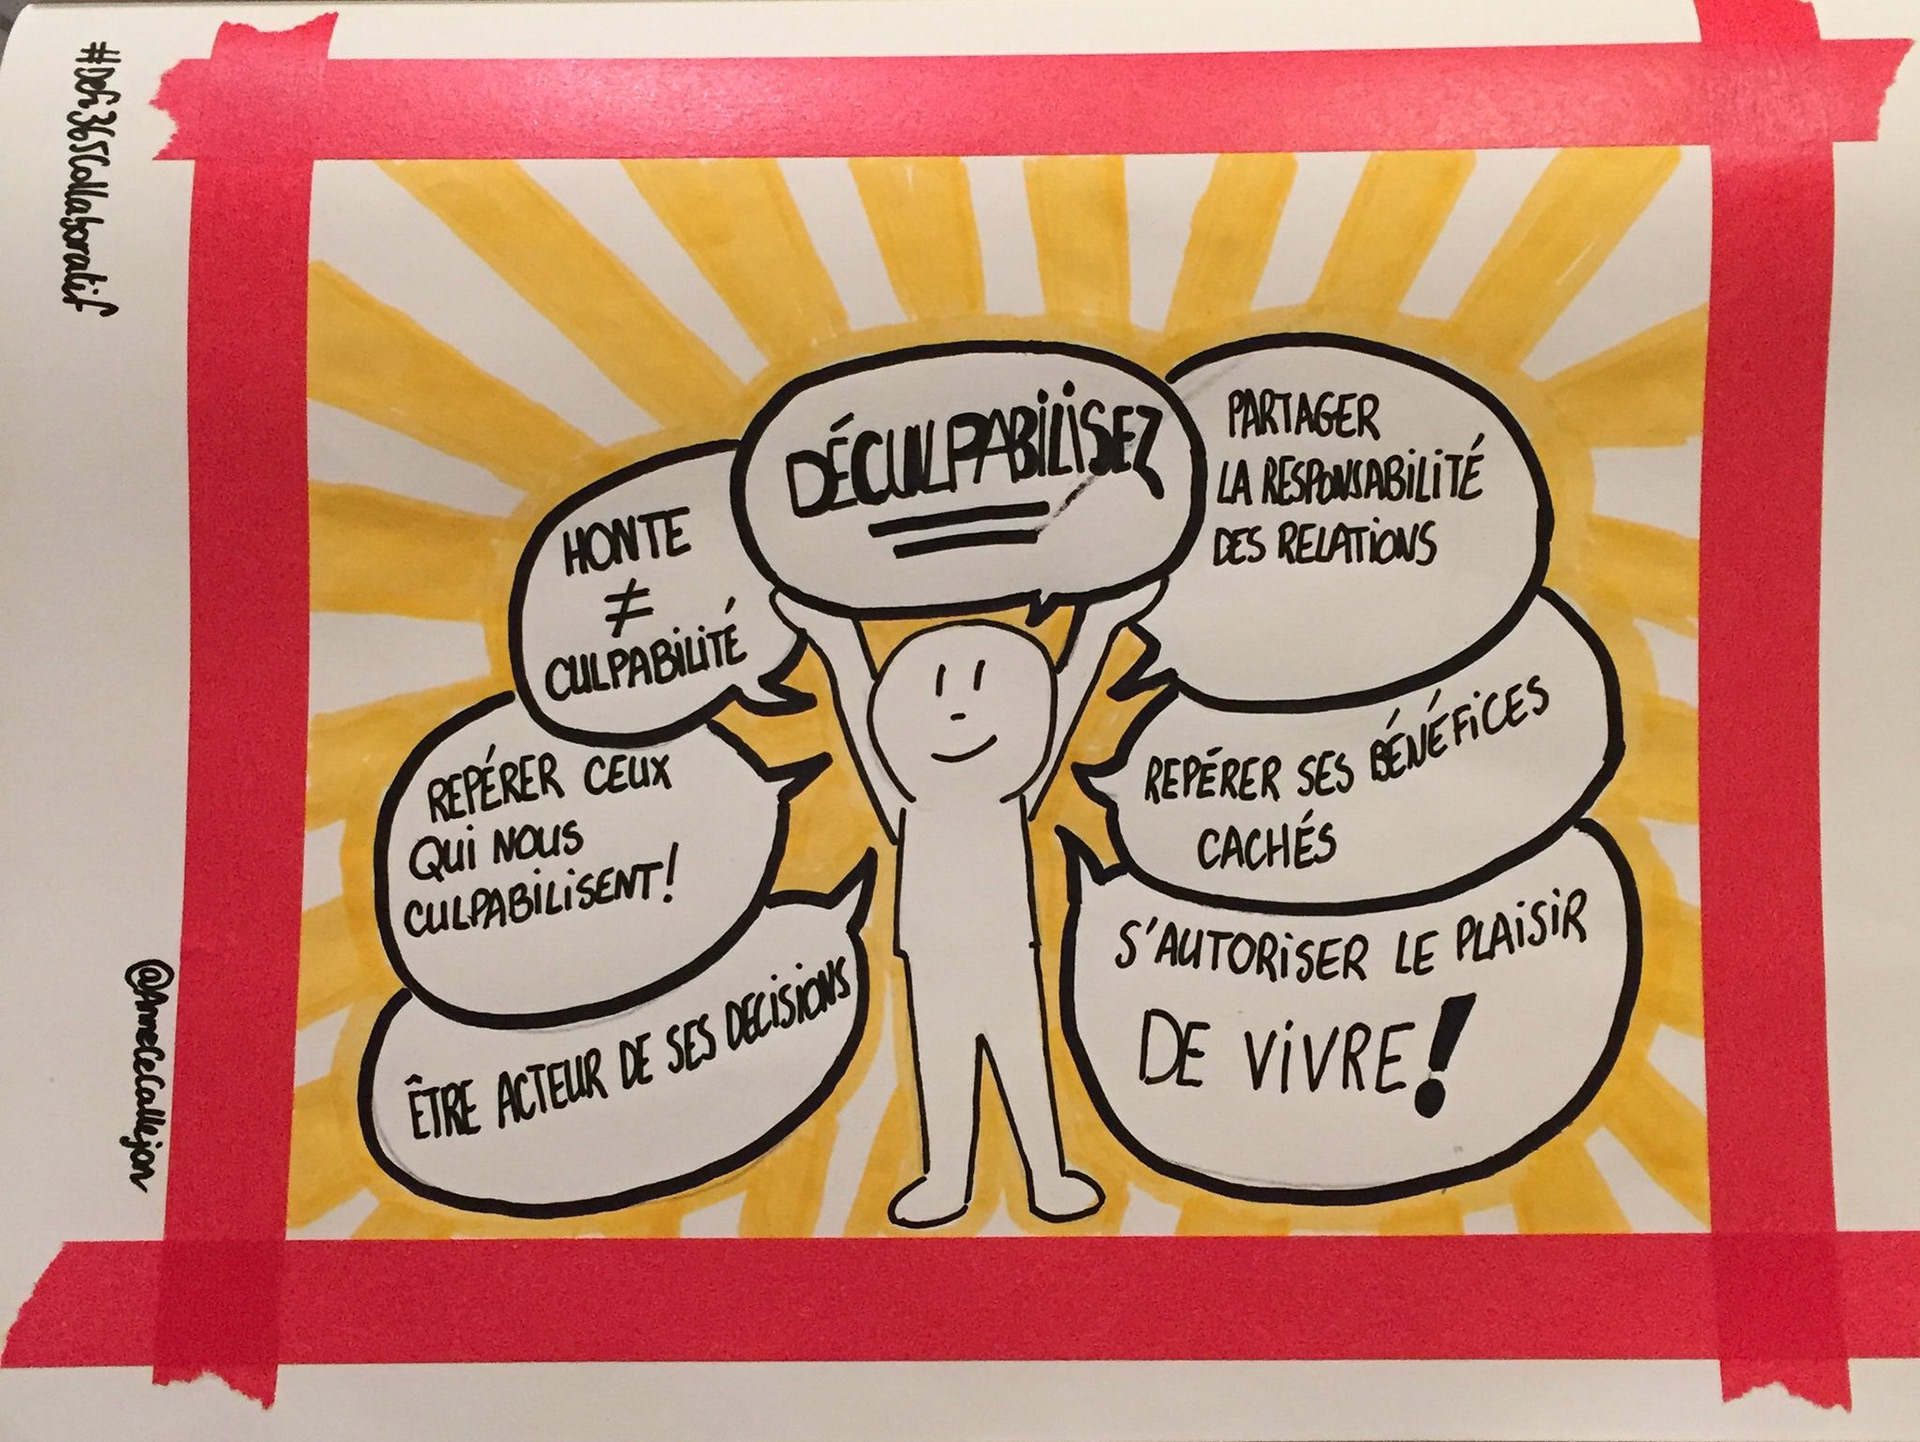 #Défi365Collaboratif
@AnneCéCallejon
DÉCULPABILISEZ
HONTE
≠
CULPABILITÉ
REPÉRER CEUX
QUI NOUS
CULPABILISENT!
ÊTRE ACTEUR DE SES DECISIONS
PARTAGER
LA RESPONSABILITÉ
DES RELATIONS
REPÉRER SES BÉNÉFICES
CACHÉS
S'AUTORISER LE PLAISIR
DE VIVRE!